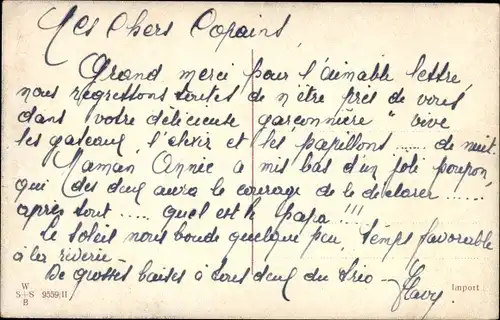 Mes Chers Copains,
Grand merci pour l'aimable lettre,
nous regrettons toutes de n'être près de vous
dans votre délicieuse garçonnière " vive
les gateaux, l'elixir et les papillons ..... de nuit.
Maman Annie a mis bas d'un joli poupon,
qui des deux aura le courage de le declarer ......
après tout ..... quel est le papa !!!
Le soleil nous boude quelque peu, temps favorable
à la rêverie -
De grosses baises à tous deux du trio -
W
S+S 9559/II
B
Import